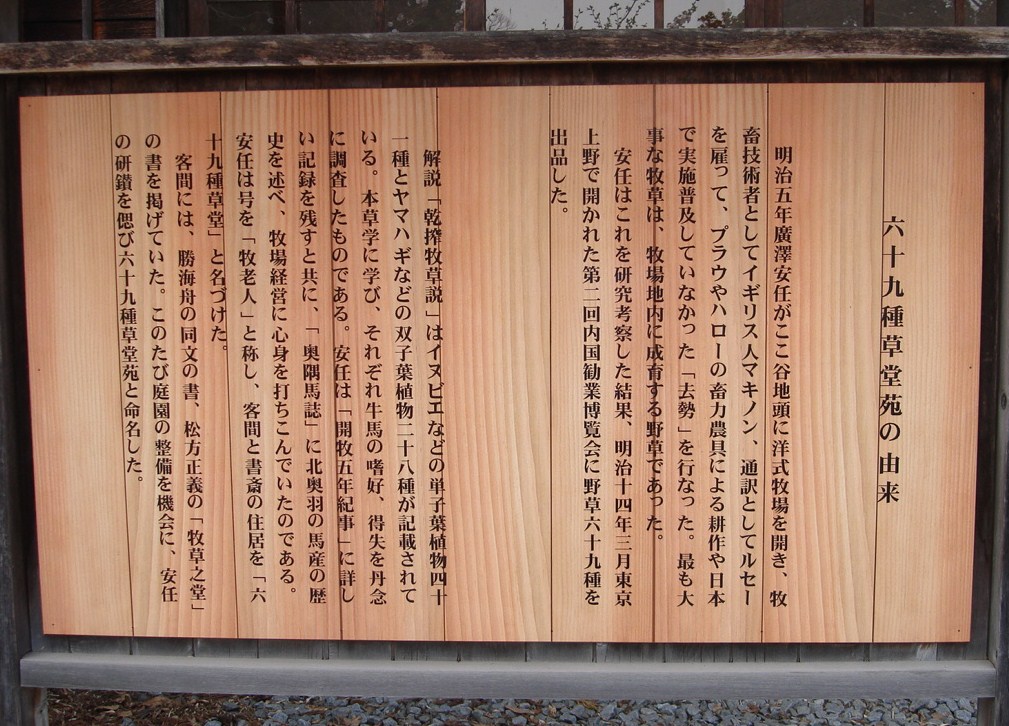 六十九種草堂苑の由来
明治五年廣澤安任がここ谷地頭に洋式牧場を開き、牧
畜技術者としてイギリス人マキノン、通訳としてルセー
を雇って、プラウやハローの畜力農具による耕作や日本
で実施普及していなかった「去勢」を行なった。最も大
事な牧草は、牧場地内に成育する野草であった。
安任はこれを研究考察した結果、明治十四年三月東京
上野で開かれた第二回内国勧業博覧会に野草六十九種を
出品した。
解説「乾搾牧草説」はイヌビエなどの単子葉植物四十
一種とヤマハギなどの双子葉植物二十八種が記載されて
いる。本草学に学び、それぞれ牛馬の嗜好、得失を丹念
に調査したものである。安任は「開牧五年紀事」に詳し
い記録を残すと共に、「奥隅馬誌」に北奥羽の馬産の歴
史を述べ、牧場経営に心身を打ちこんでいたのである。
安任は号を「牧老人」と称し、客間と書斎の住居を「六
十九種草堂」と名づけた。
客間には、勝海舟の同文の書、松方正義の「牧草之堂」
の書を掲げていた。このたび庭園の整備を機会に、安任
の研鑚を偲び六十九種草堂苑と命名した。